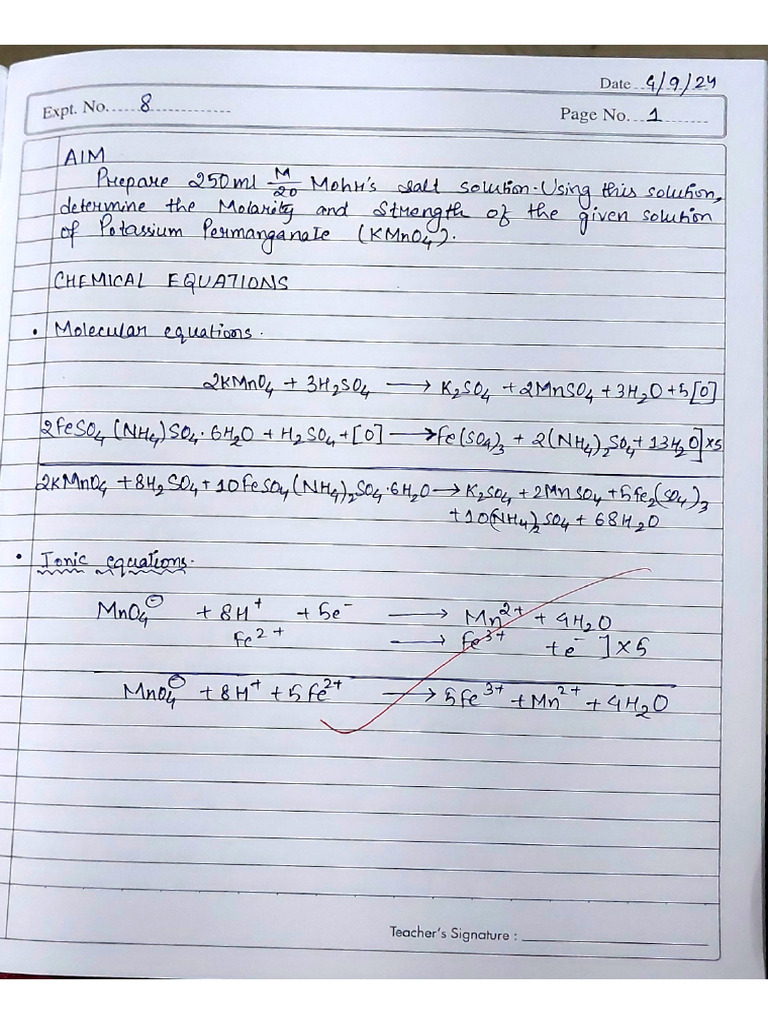 Date 4/9/24
Expt. No. 8
Page No. 1
AIM
Prepare 250ml M/20 Mohr's salt solution. Using this solution,
determine the Molarity and Strength of the given solution
of Potassium Permanganate (KMnO4).
CHEMICAL EQUATIONS
• Molecular equations.
2KMnO4 + 3H2SO4 → K2SO4 + 2MnSO4 + 3H2O + 5[O]
2FeSO4(NH4)SO4·6H2O + H2SO4 + [O] → Fe(SO4)3 + 2(NH4)2SO4 + 13H2O] ×5
2KMnO4 + 8H2SO4 + 10FeSO4(NH4)2SO4·6H2O → K2SO4 + 2MnSO4 + 5Fe2(SO4)3
+ 10(NH4)2SO4 + 68H2O
• Ionic equations.
MnO4⊖ + 8H+ + 5e- → Mn2+ + 4H2O
Fe2+ → Fe3+ + e- ] ×5
MnO4⊖ + 8H+ + 5Fe2+ → 5Fe3+ + Mn2+ + 4H2O
Teacher's Signature :